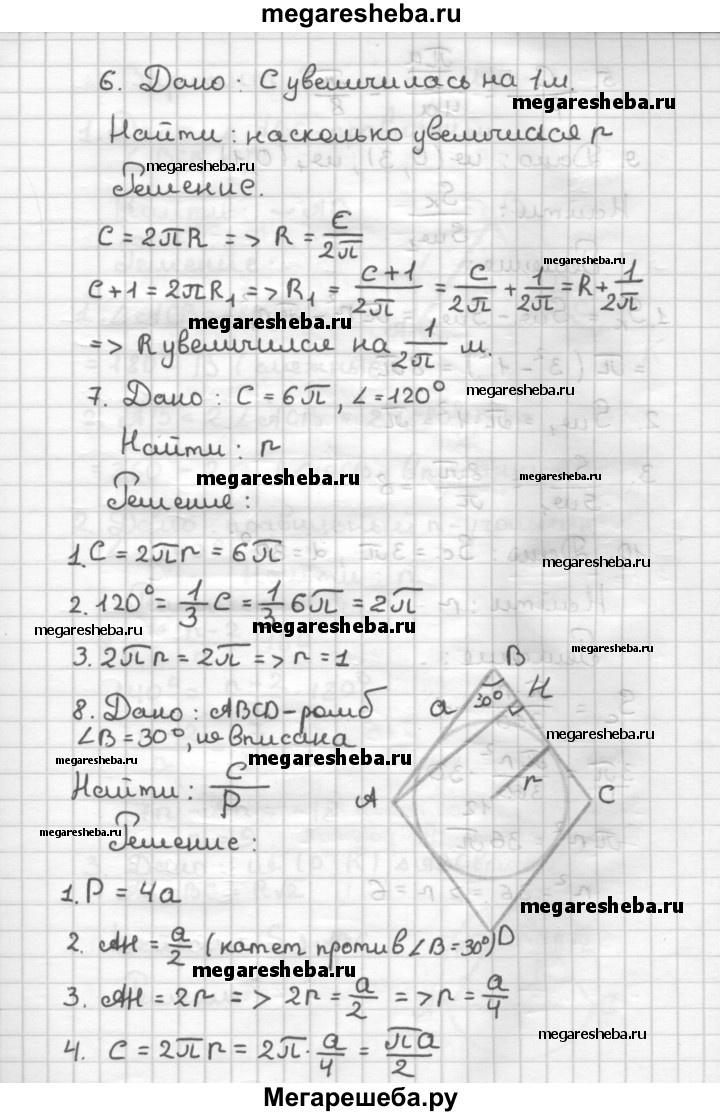 megaresheba.ru
6. Дано: С увеличилась на 1 м.
megaresheba.ru
Найти: насколько увеличился r
megaresheba.ru
Решение.
C = 2πR => R = C/2π
megaresheba.ru
C+1 = 2πR₁ => R₁ = (C+1)/2π = C/2π + 1/2π = R + 1/2π
megaresheba.ru
=> R увеличился на 1/2π м.
7. Дано: C = 6π, ∠ = 120°
megaresheba.ru
Найти: r
megaresheba.ru
Решение:
1. C = 2πr = 6π
megaresheba.ru
2. 120° = 1/3 C = 1/3 6π = 2π
megaresheba.ru
megaresheba.ru
3. 2πr = 2π => r = 1
8. Дано: ABCD - ромб
∠B = 30°, вписана
megaresheba.ru
megaresheba.ru
Найти: C/P
megaresheba.ru
Решение:
B
H
a
30°
r
A
C
D
1. P = 4a
megaresheba.ru
2. AH = a/2 (катет против ∠B = 30°)
megaresheba.ru
3. AH = 2r => 2r = a/2 => r = a/4
megaresheba.ru
4. C = 2πr = 2π · a/4 = πa/2
Мегарешеба.ру